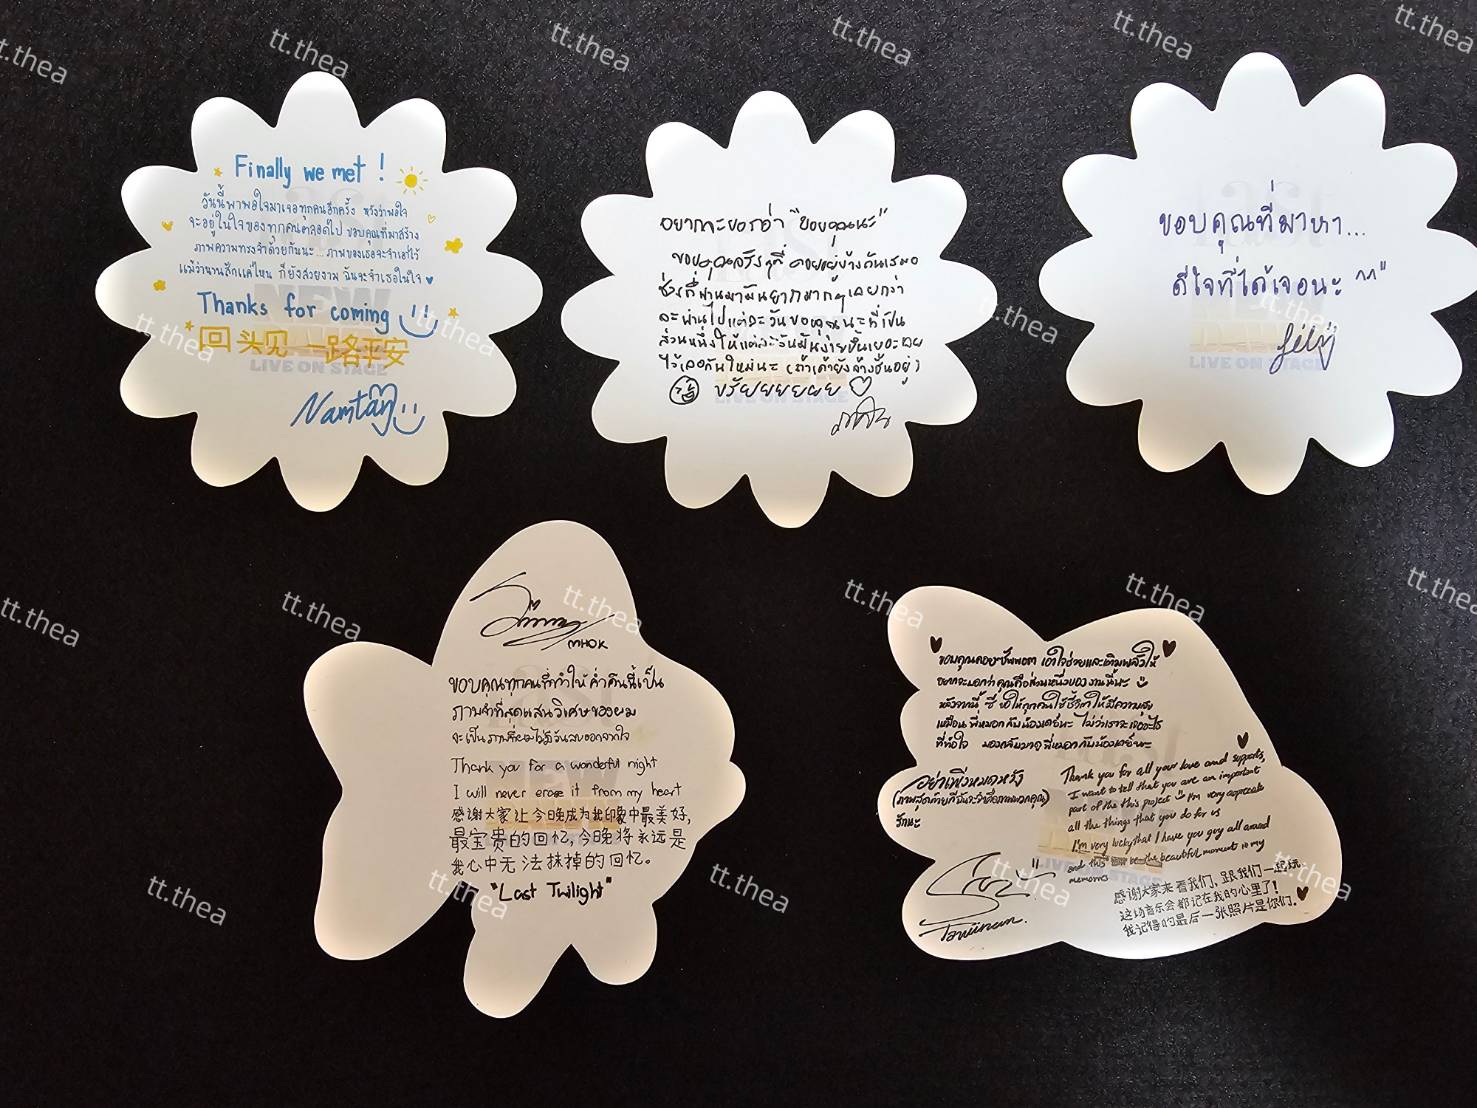 Finally we met !
วันนี้พาพอใจมาเจอทุกคนอีกครั้ง หวังว่าพอใจ
จะอยู่ในใจของทุกคนตลอดไป ขอบคุณที่มาสร้าง
ภาพความทรงจำด้วยกันนะ... ภาพของเธอจะจำเอาไว้
แม้ว่านานสักแค่ไหน ก็ยังสวยงาม ฉันจะจำเธอในใจ
Thanks for coming
回头见 一路平安
LIVE ON STAGE
Namtan
อยากจะบอกว่า "ขอบคุณนะ"
ขอบคุณจริงๆที่คอยอยู่ข้างกันเสมอ
ช่วงที่ผ่านมามันยากมากๆเลยกว่า
จะผ่านไปแต่ละวันขอบคุณนะที่เป็น
ส่วนหนึ่งให้แต่ละวันมันง่ายขึ้นเยอะเลย
ไว้เจอกันใหม่นะ (ถ้าเค้ายังจ้างชั้นอยู่)
บรัยยยยยยย
LIVE ON STAGE
ขอบคุณที่มาหา...
ดีใจที่ได้เจอนะ ^^"
LIVE ON STAGE
Jimmy
MHOK
ขอบคุณทุกคนที่ทำให้ค่ำคืนนี้เป็น
ภาพจำที่สุดแสนวิเศษของผม
จะเป็นภาพที่ผมไม่มีวันลบออกจากใจ
Thank you for a wonderful night
I will never erase it from my heart
感谢大家让今晚成为我印象中最美好,
最宝贵的回忆,今晚将永远是
我心中无法抹掉的回忆。
"Last Twilight"
ขอบคุณคอยซัพพอต เอาใจช่วยและเติมพลังให้
อยากจะบอกว่าคุณคือส่วนหนึ่งของงานนี้นะ
หลังจากนี้ ซี ขอให้ทุกคนใช้ชีวิตให้มีความสุข
เหมือนพี่หมอกกับน้องเดย์นะ ไม่ว่าเราจะเจออะไร
ที่ทำใจ มองกลับมาดูพี่หมอกกับน้องเดย์นะ
อย่าเพิ่งหมดหวัง
(ภาพสุดท้ายที่ฉันจะจำคือภาพพวกคุณ)
รักนะ
Thank you for all your love and supports,
I want to tell that you are an important
part of the this project I'm very appreciate
all the things that you do for us
I'm very lucky that I have you guy all around
and this be the beautiful moment in my
memories
感谢大家来看我们,跟我们一起玩
这场音乐会都记在我的心里了!
我记得的最后一张照片是你们.
Tawinan.
LIVE ON STAGE
tt.thea